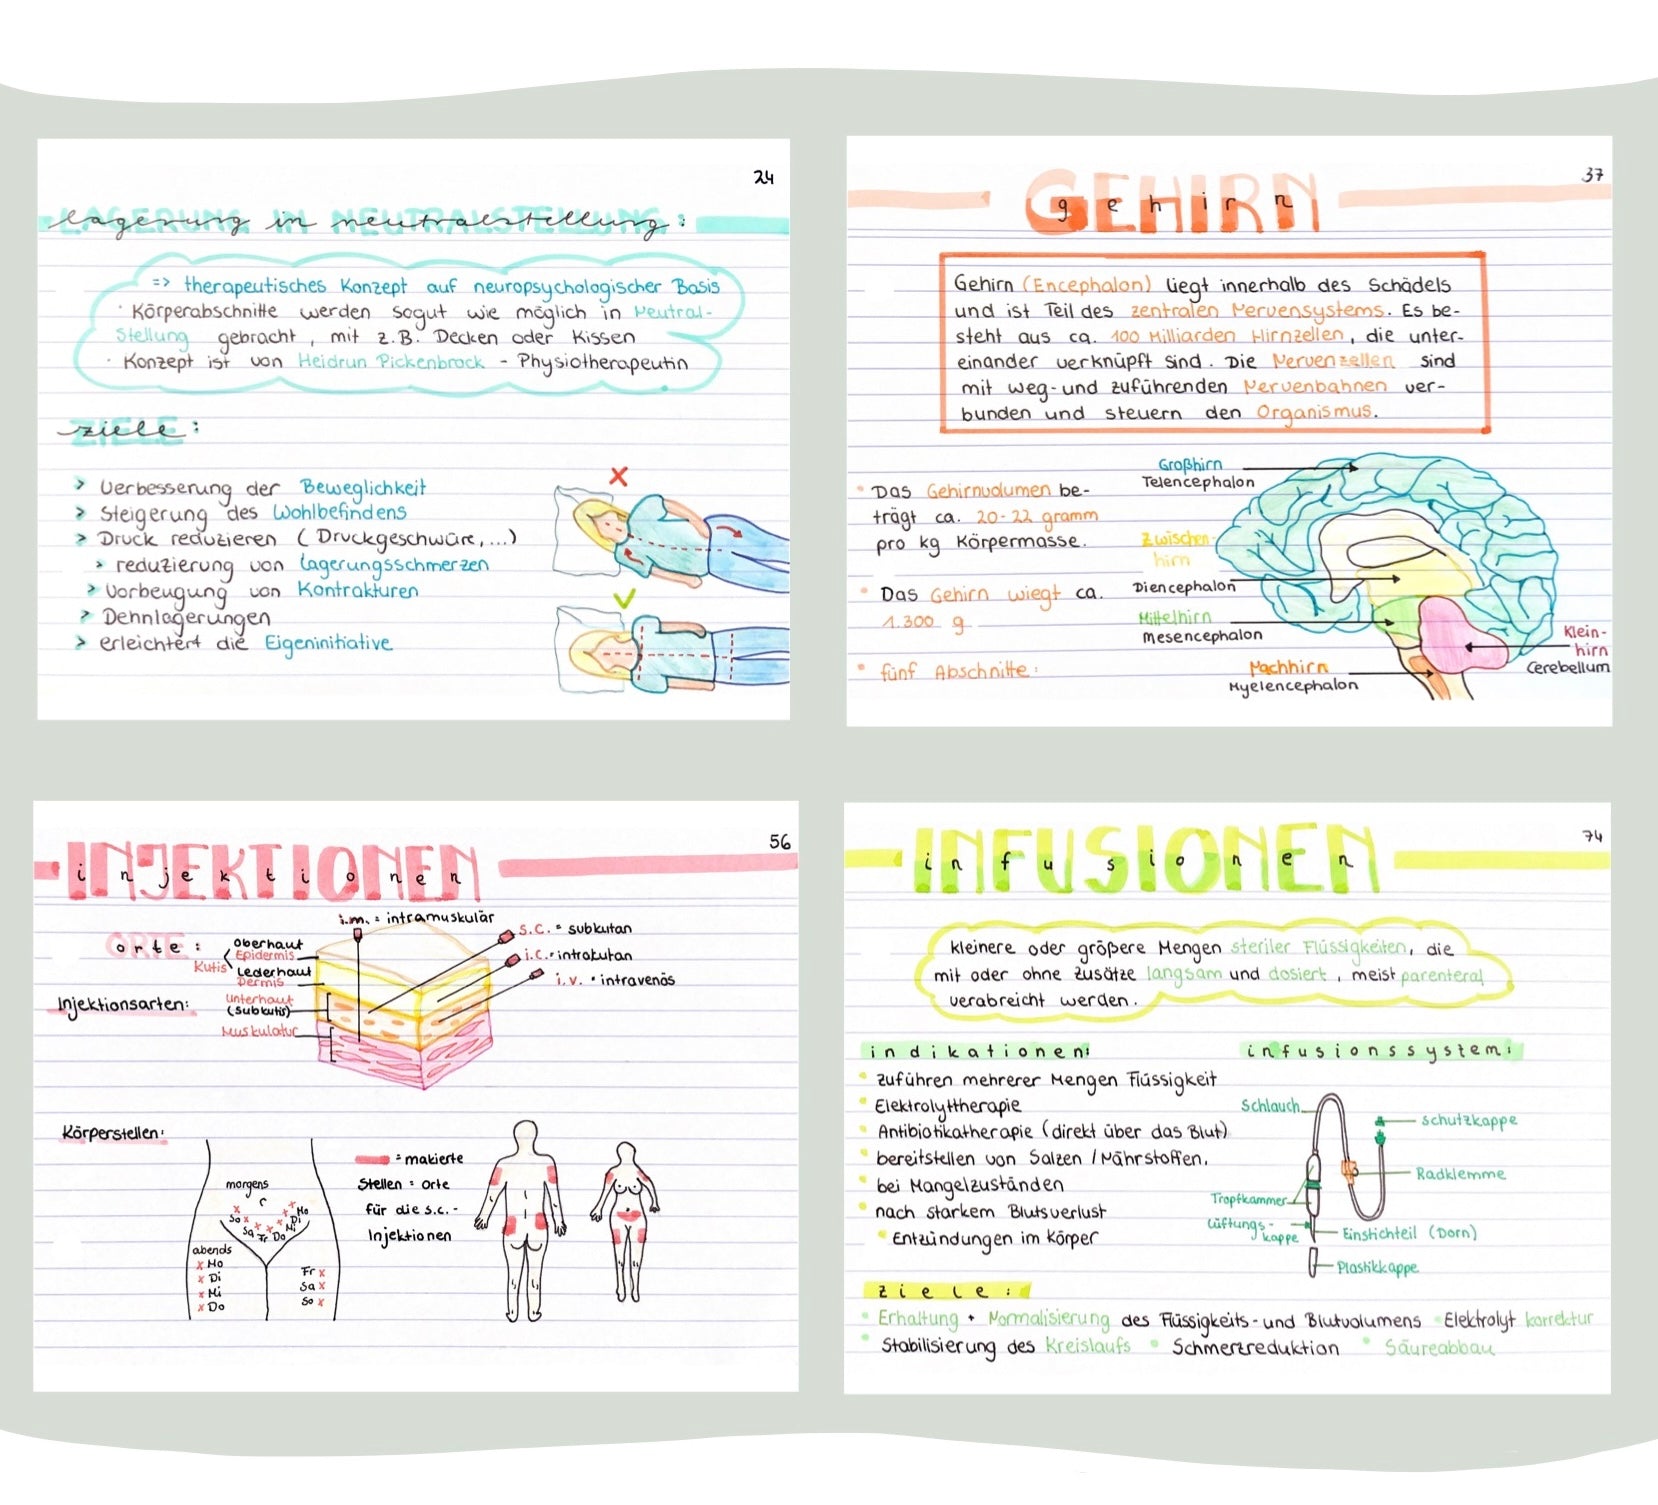 24
lagerung in neutralstellung:
=> therapeutisches Konzept auf neuropsychologischer Basis
· Körperabschnitte werden sogut wie möglich in Neutral-
Stellung gebracht, mit z.B. Decken oder Kissen
· Konzept ist von Heidrun Pickenbrock - Physiotherapeutin
ziele:
> Verbesserung der Beweglichkeit
> Steigerung des Wohlbefindens
> Druck reduzieren (Druckgeschwüre,...)
> reduzierung von Lagerungsschmerzen
> Vorbeugung von Kontrakturen
> Dehnlagerungen
> erleichtert die Eigeninitiative
37
GEHIRN
gehirn
Gehirn (Encephalon) liegt innerhalb des Schädels
und ist Teil des zentralen Nervensystems. Es be-
steht aus ca. 100 Milliarden Hirnzellen, die unter-
einander verknüpft sind. Die Nervenzellen sind
mit weg- und zuführenden Nervenbahnen ver-
bunden und steuern den Organismus.
• Das Gehirnvolumen be-
trägt ca. 20-22 gramm
pro kg Körpermasse.
• Das Gehirn wiegt ca.
1.300 g
• fünf Abschnitte:
Großhirn
Telencephalon
Zwischen-
hirn
Diencephalon
Mittelhirn
Mesencephalon
Nachhirn
Myelencephalon
Klein-
hirn
Cerebellum
56
INJEKTIONEN
injektionen
orte:
i.m. = intramuskulär
s.c. = subkutan
i.c. = intrakutan
i.v. = intravenös
Oberhaut
Epidermis
Kutis
Lederhaut
Dermis
Unterhaut
(Subkutis)
Muskulatur
Injektionsarten:
Körperstellen:
morgens
So Sa Fr Do Mi Di Mo
abends
x Mo
x Di
x Mi
x Do
Fr x
Sa x
So x
= makierte
Stellen = Orte
für die s.c.-
Injektionen
74
INFUSIONEN
infusionen
kleinere oder größere Mengen steriler Flüssigkeiten, die
mit oder ohne Zusätze langsam und dosiert, meist parenteral
verabreicht werden.
indikationen:
• zuführen mehrerer Mengen Flüssigkeit
• Elektrolyttherapie
• Antibiotikatherapie (direkt über das Blut)
• bereitstellen von Salzen / Nährstoffen,
• bei Mangelzuständen
• nach starkem Blutsverlust
• Entzündungen im Körper
infusionssystem:
Schlauch
Schutzkappe
Radklemme
Tropfkammer
Lüftungs-
kappe
Einstichteil (Dorn)
Plastikkappe
ziele:
• Erhaltung + Normalisierung des Flüssigkeits- und Blutvolumens • Elektrolyt korrektur
• Stabilisierung des Kreislaufs • Schmerzreduktion • Säureabbau